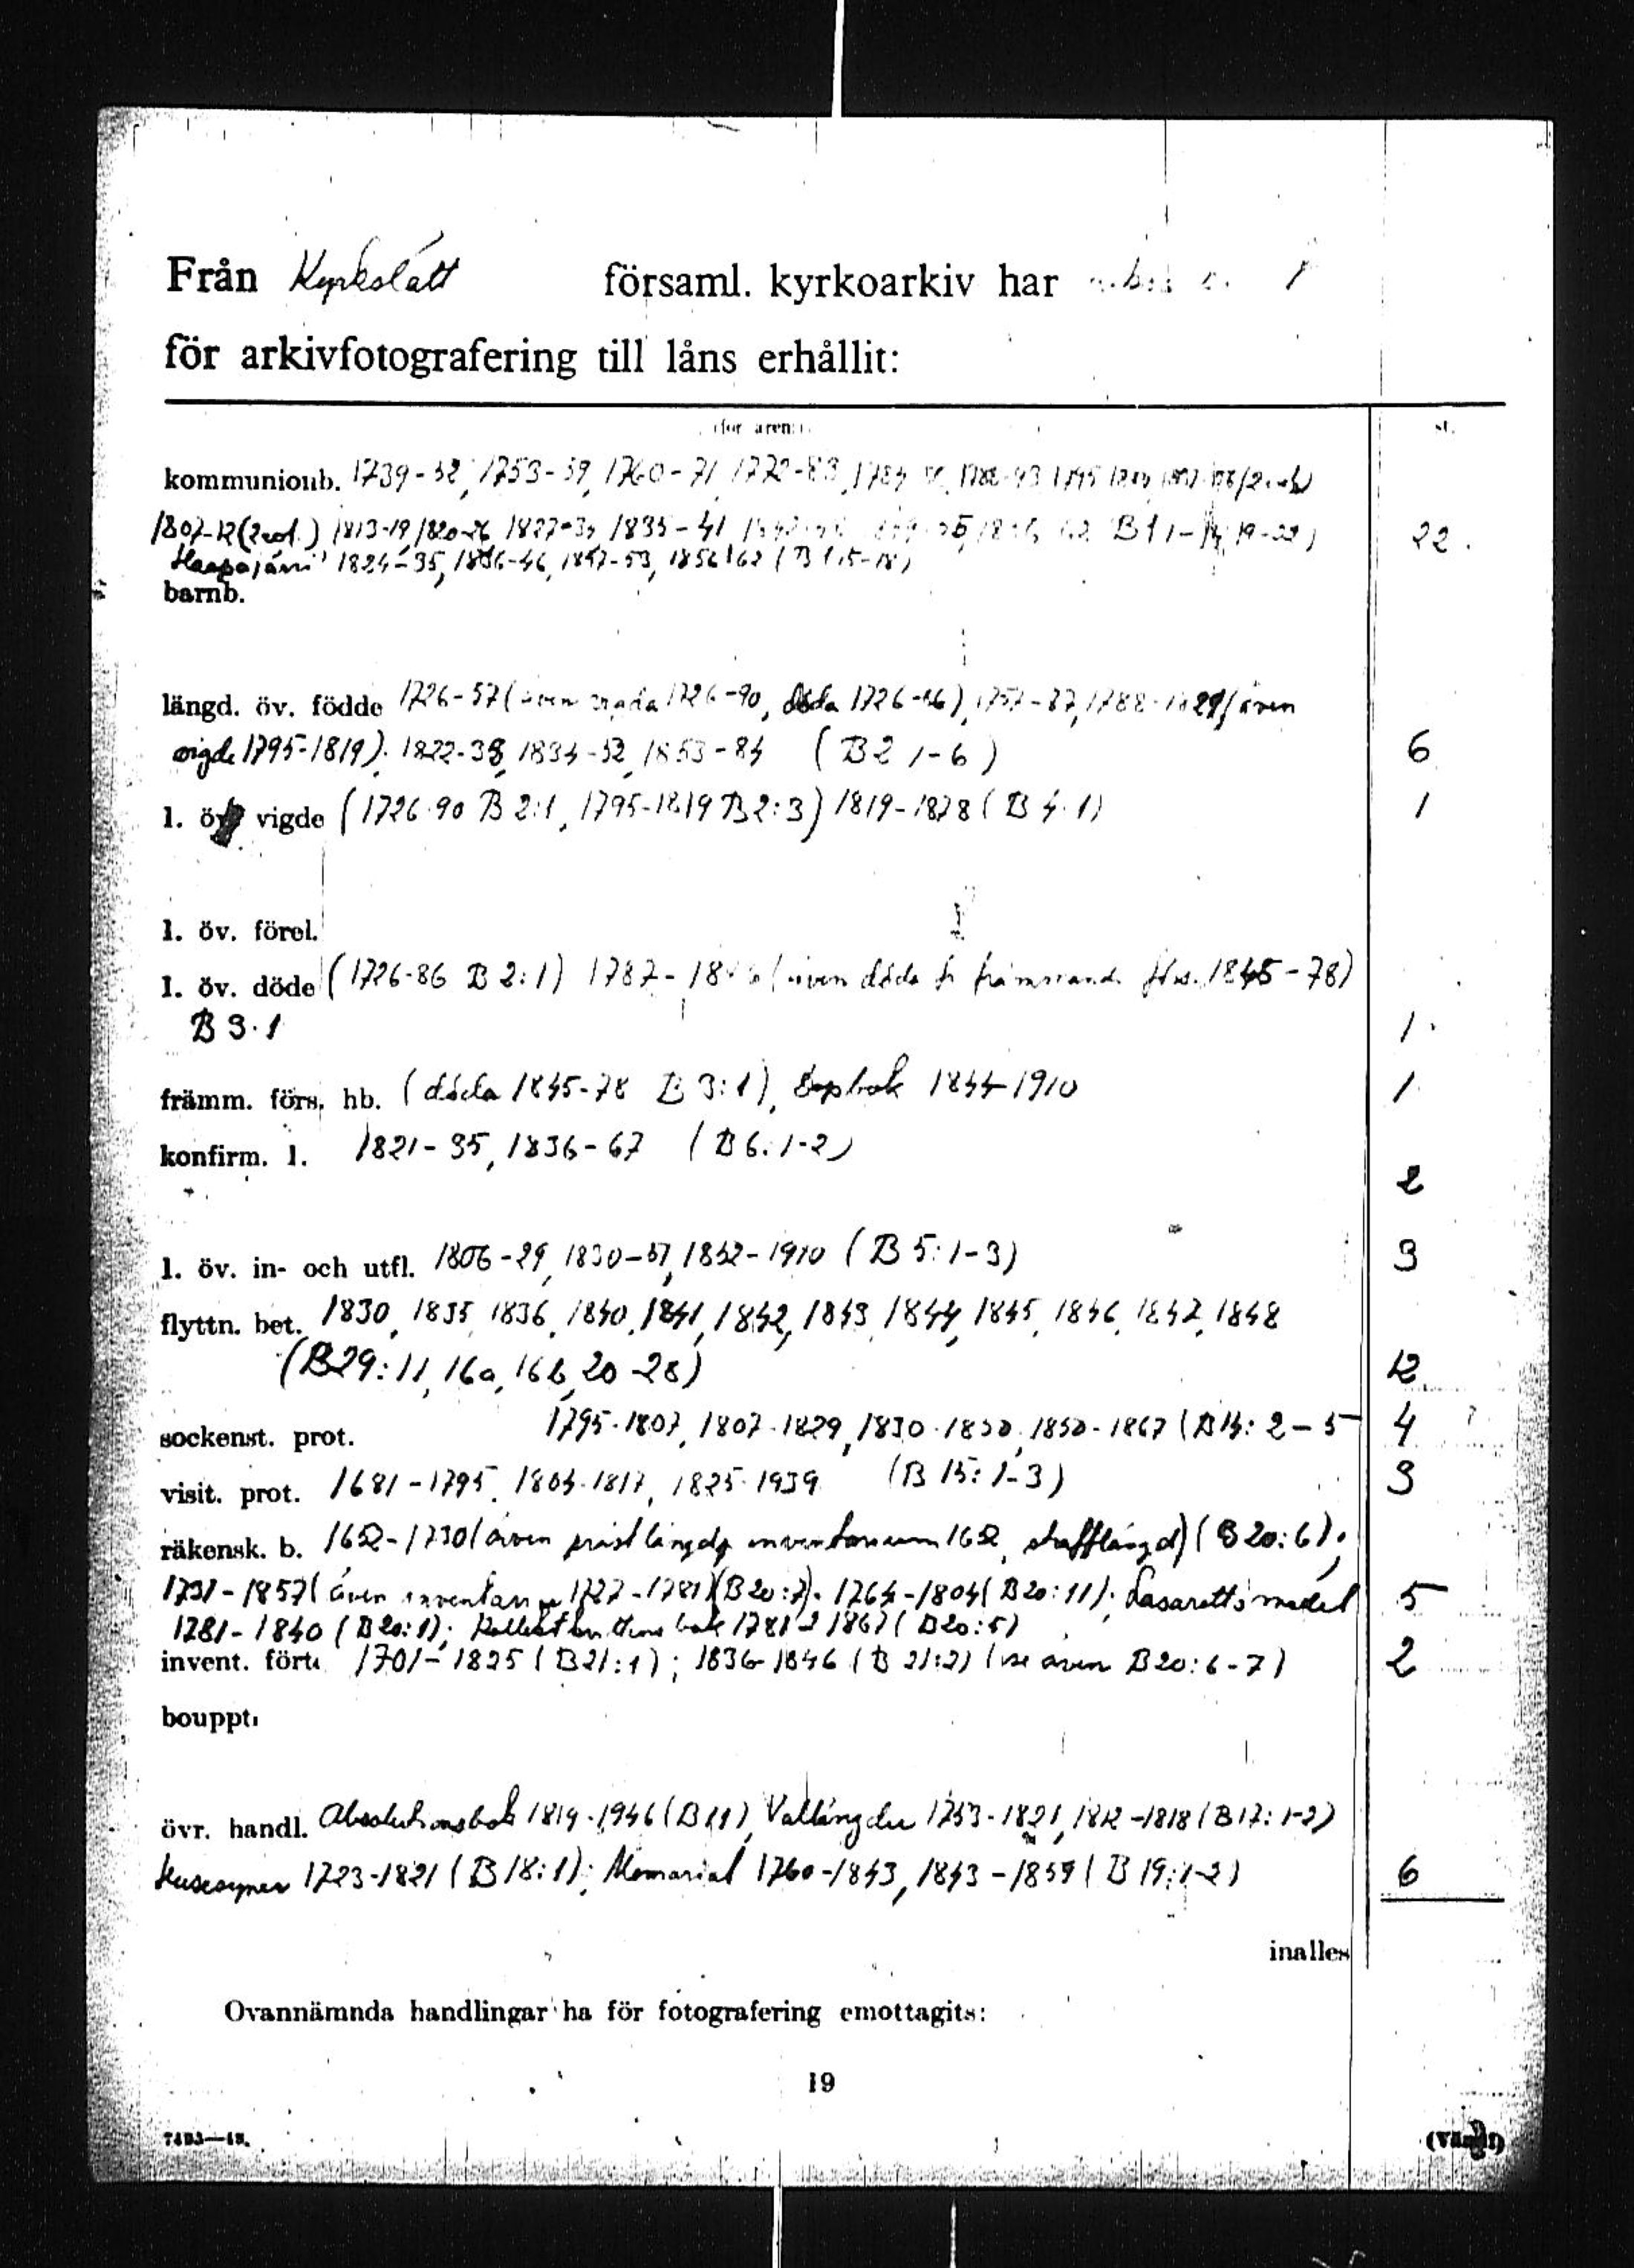 Från Kyrkslätt församl. kyrkoarkiv har
för arkivfotografering till låns erhållit:
(för åren:) st.
kommunionb. 1739-52, 1753-59, 1760-71, 1772-83,
1807-12 (2 vol.) 1813-19, 1820-26, 1827-34, 1835-41 B 1 1-14, 19-22) 22.
Haapajärvi 1824-35, 1836-46, 1847-53, 1856-62 (B 1:15-18)
barnb.
längd. öv. födde 1726-57 (även vigda 1726-90, döda 1726-86), 1757-87, 1788-1821 (även
vigde 1795-1819). 1822-38, 1834-52, 1853-84 (B 2 1-6) 6
l. öv. vigde (1726-90 B 2:1, 1795-1819 B 2:3) 1819-1878 (B 4:1) 1
l. öv. förel.
l. öv. döde (1726-86 B 2:1) 1787- (även döda fr främmande förs. 1845-78)
B 3:1 1.
främm. förs. hb. (döda 1845-78 B 3:1), Dopbok 1844-1910 1
konfirm. l. 1821-35, 1836-67 (B 6:1-2)
2
l. öv. in- och utfl. 1806-29, 1830-51, 1852-1910 (B 5:1-3) 3
flyttn. bet. 1830, 1835, 1836, 1840, 1841, 1842, 1843, 1844, 1845, 1846, 1847, 1848
(B29: 11, 16a, 16b, 20-28) 12
sockenst. prot. 1795-1807, 1807-1829, 1830-1850, 1850-1867 (B 14: 2-5 4
visit. prot. 1681-1795, 1804-1817, 1825-1939 (B 15: 1-3) 3
räkensk. b. 1652-1730 (även inventarium 1652, ) (B 20:6);
1731-1857 (även inventarium 1727-1781) (B 20:7). 1764-1804 (B20:11); Lasarettsmedel 5
1781-1840 (B 20:1); bok 1781-1867 (B20:5)
invent. fört. 1701-1825 (B21:1); 1836-1846 (B 21:2) (se även B20:6-7) 2
bouppt.
övr. handl. Absolutionsbok 1819-1946 (B 11), Vallängder 1753-1821, 1812-1818 (B 17: 1-2)
Husesyner 1723-1821 (B 18:1); Memorial 1760-1843, 1843-1859 (B 19:1-2) 6
inalles
Ovannämnda handlingar ha för fotografering emottagits:
19
7493—48. (Vänd!)